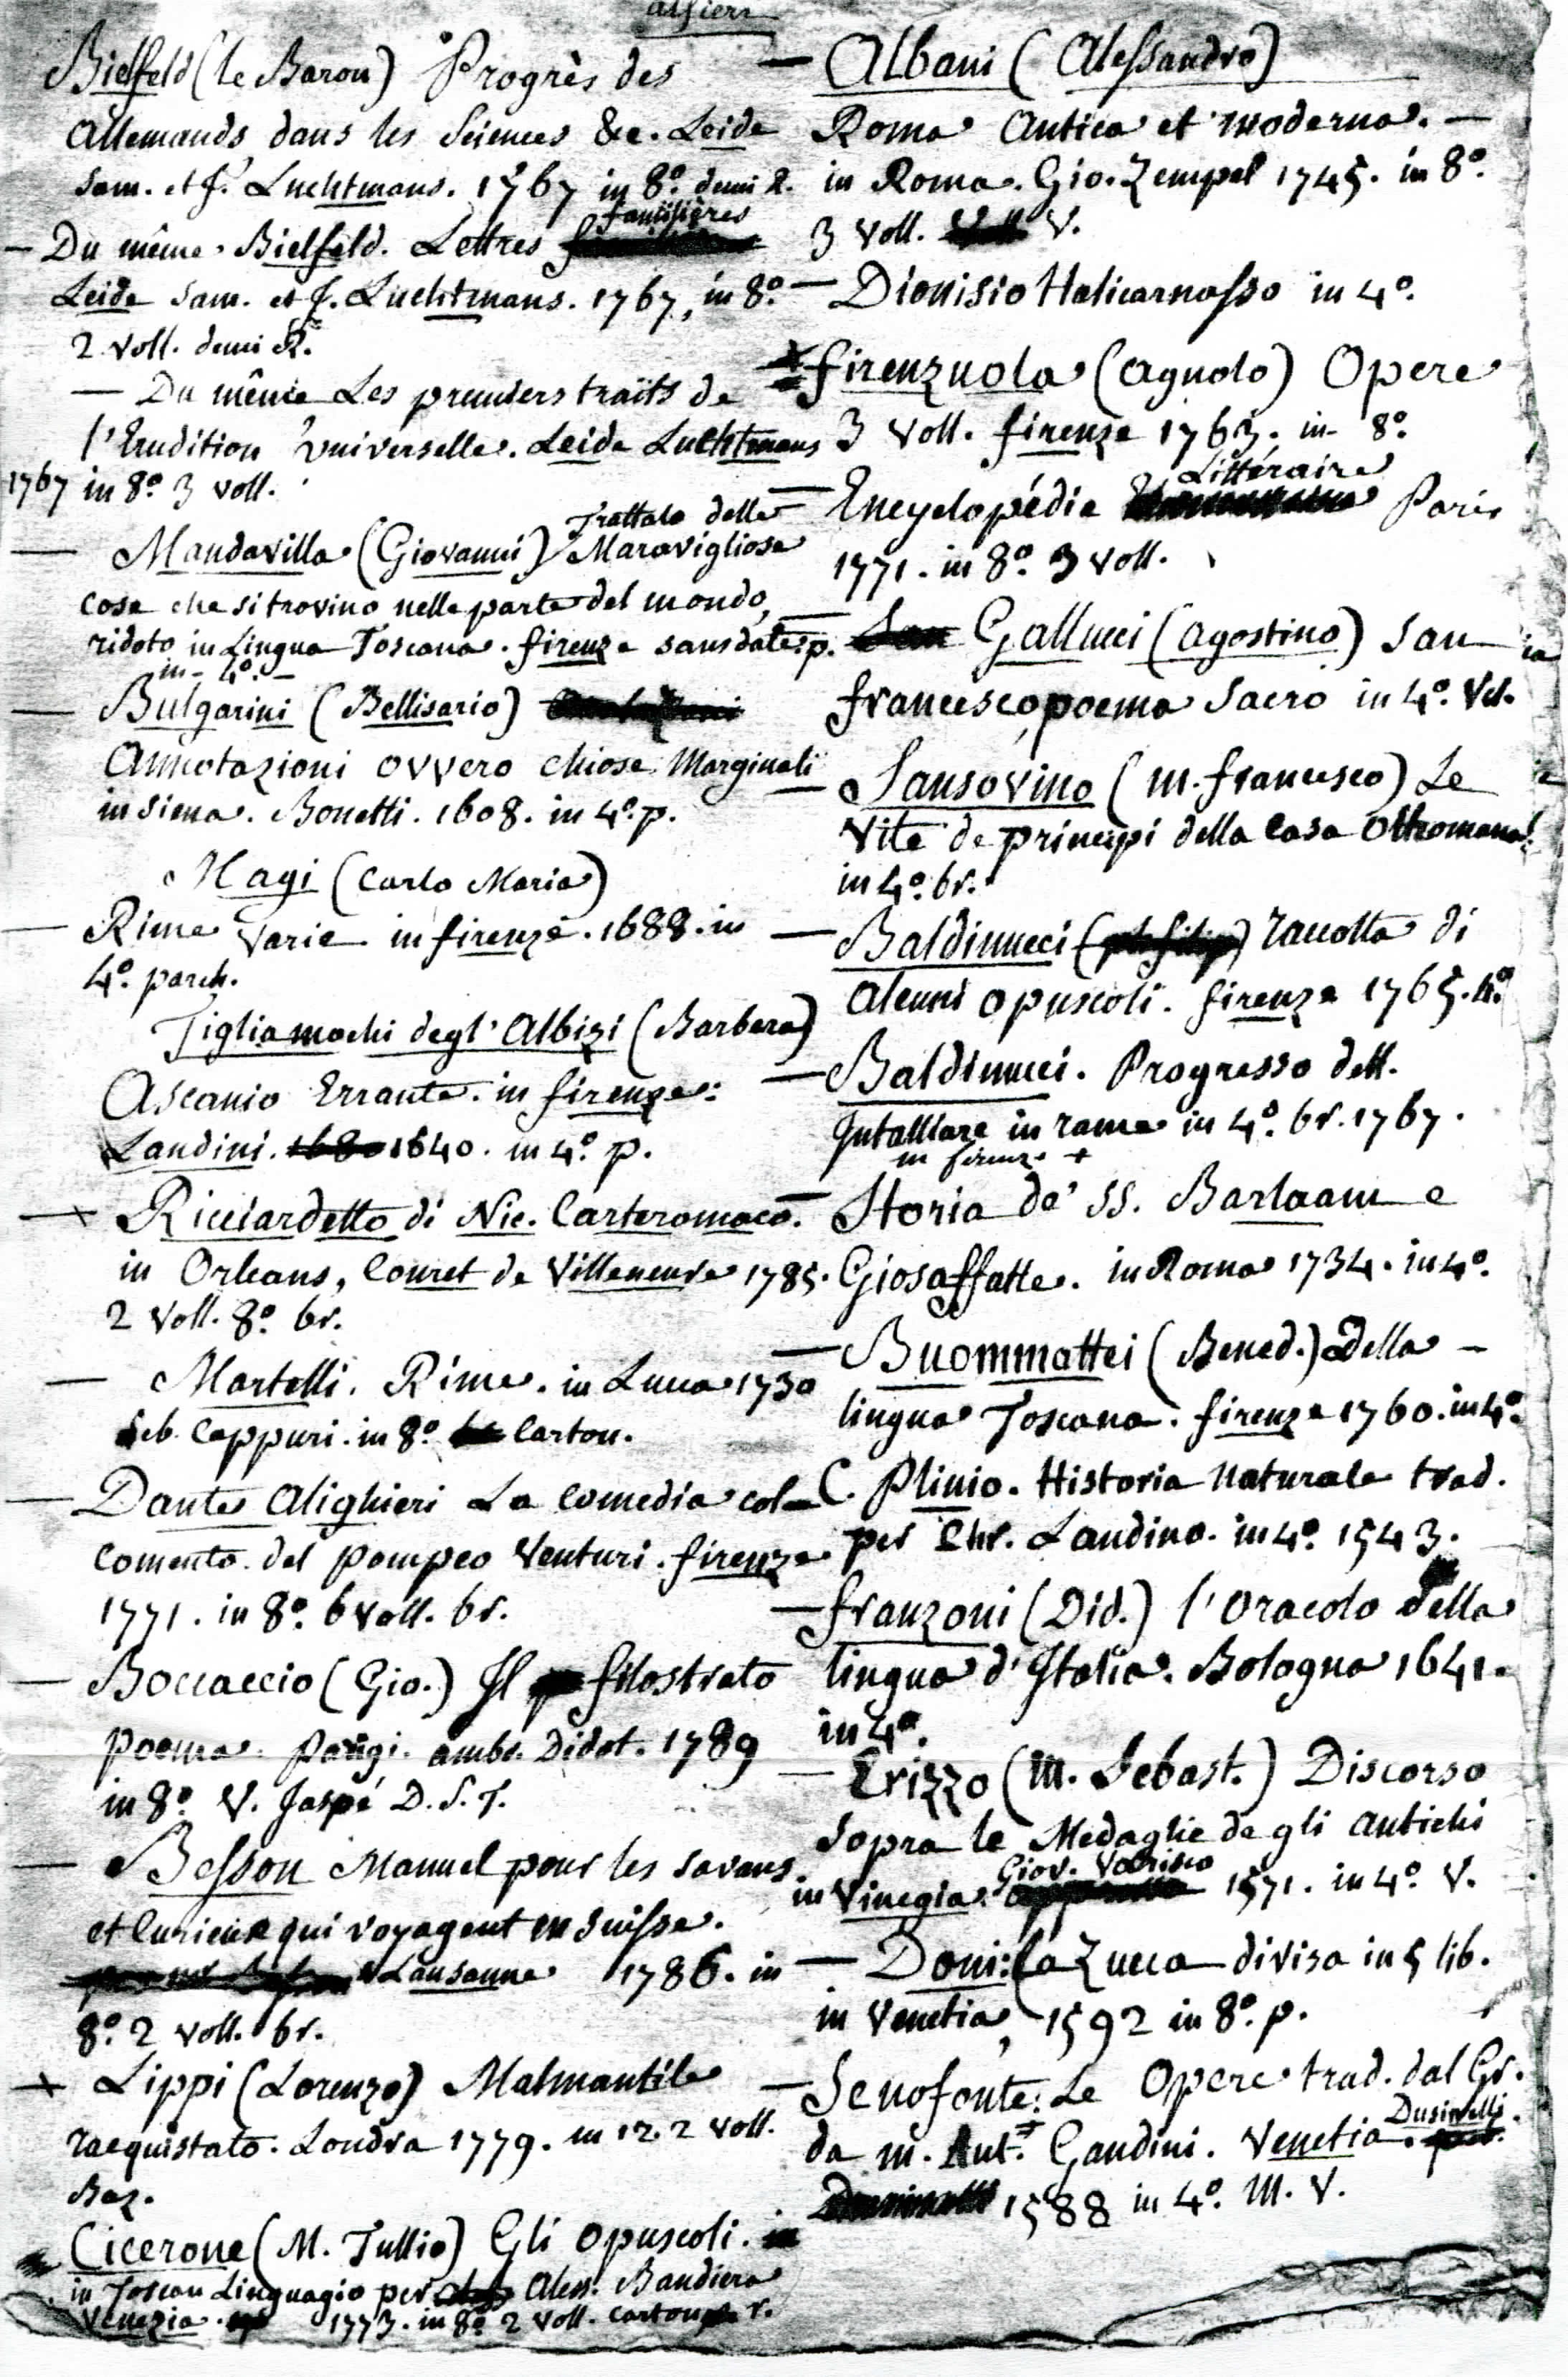 alfieri
Bielfeld (le Baron) Progrès des
Allemands dans les Sciences &c. Leide
Sam. et J. Luchtmans. 1767 in 8º. demi R.
familières
— Du même. Bielfeld. Lettres
Leide Sam. et J. Luchtmans. 1767, in 8º.
2 voll. demi R.
— Du même Les premiers traits de
l'Erudition Universelle. Leide Luchtmans
1767 in 8º. 3 voll.
Trattato delle
— Mandavilla (Giovanni) Maravigliose
cose che si trovino nelle parte del mondo,
ridoto in Lingua Toscana. firenze sans date. p.
in-4º. —
— Bulgarini (Bellisario)
Annotazioni ovvero chiose Marginali
in Siena. Bonetti. 1608. in 4º. p.
Magi (Carlo Maria)
— Rime varie in firenze. 1688. in
4º. parch.
Tigliamochi degl' Albizi (Barbera)
Ascanio Errante. in firenze:
Landini. 1680 1640. in 4º. p.
Ricciardetto di Nic. Carteromaco.
in Orleans, Couret de Villeneuve 1785.
2 voll. 8º. br.
— Martelli. Rime. in Lucca 1730
Seb. Cappuri. in 8º. Carton.
— Dante Alighieri La Comedia col
Comento del Pompeo Venturi. firenze
1771. in 8º. 6 voll. br.
— Boccaccio (Gio.) Il filostrato
poema. Parigi. ambr. Didot. 1789
in 8º. V. Jaspé D. S. T.
— Besson Manuel pour les savans
et Curieux qui voyagent en Suisse.
Lausanne 1786. in
8º. 2 voll. br.
+ Lippi (Lorenzo) Malmantile
racquistato. Londra 1779. in 12. 2 voll.
Baz.
Cicerone (M. Tullio) Gli opuscoli. in
in Toscan Linguagio per Aless. Bandiera
Venezia. 1773. in 8º 2 voll. carton r.
— Albani (Alessandro)
Roma Antica et moderna. —
in Roma. Gio. Zempel 1745. in 8º.
3 voll. V.
— Dionisio Halicarnasso in 4º.
firenzuola (agnolo) Opere
3 voll. firenze 1763. in 8º.
Littéraire
— Encyclopédie Paris
1771. in 8º. 3 voll.
— San Gallucci (Agostino) San
francesco, poema Sacro in 4º. Vel.
— Sansovino (M. francesco) Le
Vite de principi della casa Ottomana
in 4º. br.
— Baldinucci (filip) raccolta di
alcuni opuscoli. firenze 1765. 4º.
— Baldinucci. Progresso dell.
Intalliare in rame in 4º. br. 1767.
in firenze +
— Storia de' SS. Barlaam e
Giosaffatte. in Roma 1734. in 4º.
— Buommattei (Bened.) della —
lingua Toscana. firenze 1760. in 4º.
— C. Plinio. Historia Naturale trad.
per Chr. Landino. in 4º. 1543.
— franzoni (Did.) l'Oracolo della
lingua d'Italia. Bologna 1641.
in 4º.
— Erizzo (M. Sebast.) Discorso
Sopra le Medaglie de gli antichi
Giov. Varisco
in Vinegia. 1571. in 4º. V.
— Doni: la Zucca divisa in 5 lib.
in Venetia, 1592 in 8º. p.
— Senofonte: Le Opere trad. dal Gr.
Dusinelli.
da M. Ant. Gandini. Venetia.
1588 in 4º. M. V.